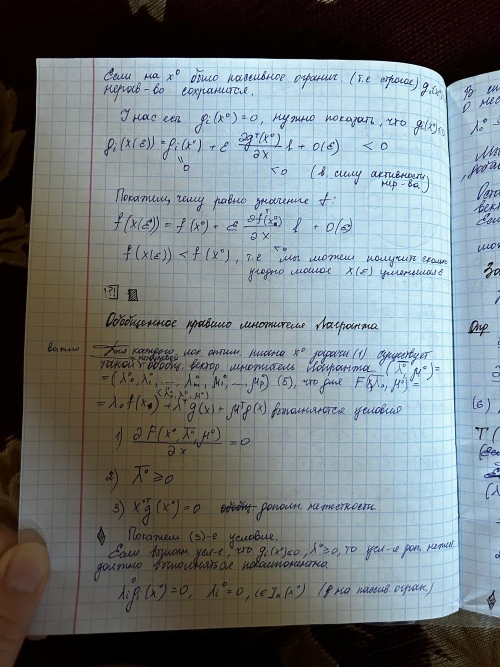 Если на x⁰ было пассивное огранич. (т.е строгое) gᵢ(x
нерав-во сохранится.
У нас есть gᵢ(x⁰)=0, нужно показать, что gᵢ(x⁰)≤0
gᵢ(x(ε)) = gᵢ(x⁰) + ε ∂gᵀ(x⁰)/∂x l + O(ε) < 0
0 <0 (в силу активности нер-ва)
Покажем, чему равно значение f:
f(x(ε)) = f(x⁰) + ε ∂f(x⁰)/∂x l + O(ε)
<0
f(x(ε)) < f(x⁰), т.е мы можем получить сколь
угодно малое x(ε) уменьшая ε
Обобщенное правило множителя Лагранжа
важно каждого лок. оптим. плана x⁰ задачи (1) существует
такой обобщ. вектор множителе Лагранжа (λ̄⁰, μ⁰) =
= (λ₀⁰, λ₁⁰, ... λₘ⁰, μ₁⁰, ... μₚ⁰) (5), что для F(x, λ̄⁰, μ⁰) =
= λ₀ f(x₀) + λᵀg(x) + μᵀg(x) выполняются условия
1) ∂F(x⁰, λ̄⁰, μ⁰)/∂x = 0
2) λ̄⁰ ≥ 0
3) λ⁰ᵀg(x⁰) = 0 дополн. нежесткости
Покажем (3)-е условие.
Если выполн усл-е, что gᵢ(x⁰)≤0, λ⁰≥0, то усл-е доп. нежест
должно выполняться покомпонентно.
λᵢ⁰gᵢ(x⁰)=0, λᵢ⁰=0, i∈Iₙ(x⁰) (для пассив. огран.)
В сил
О нер
λ₀⁰
Мы
Оста
вект
Если
мож
За
Опр
(6)